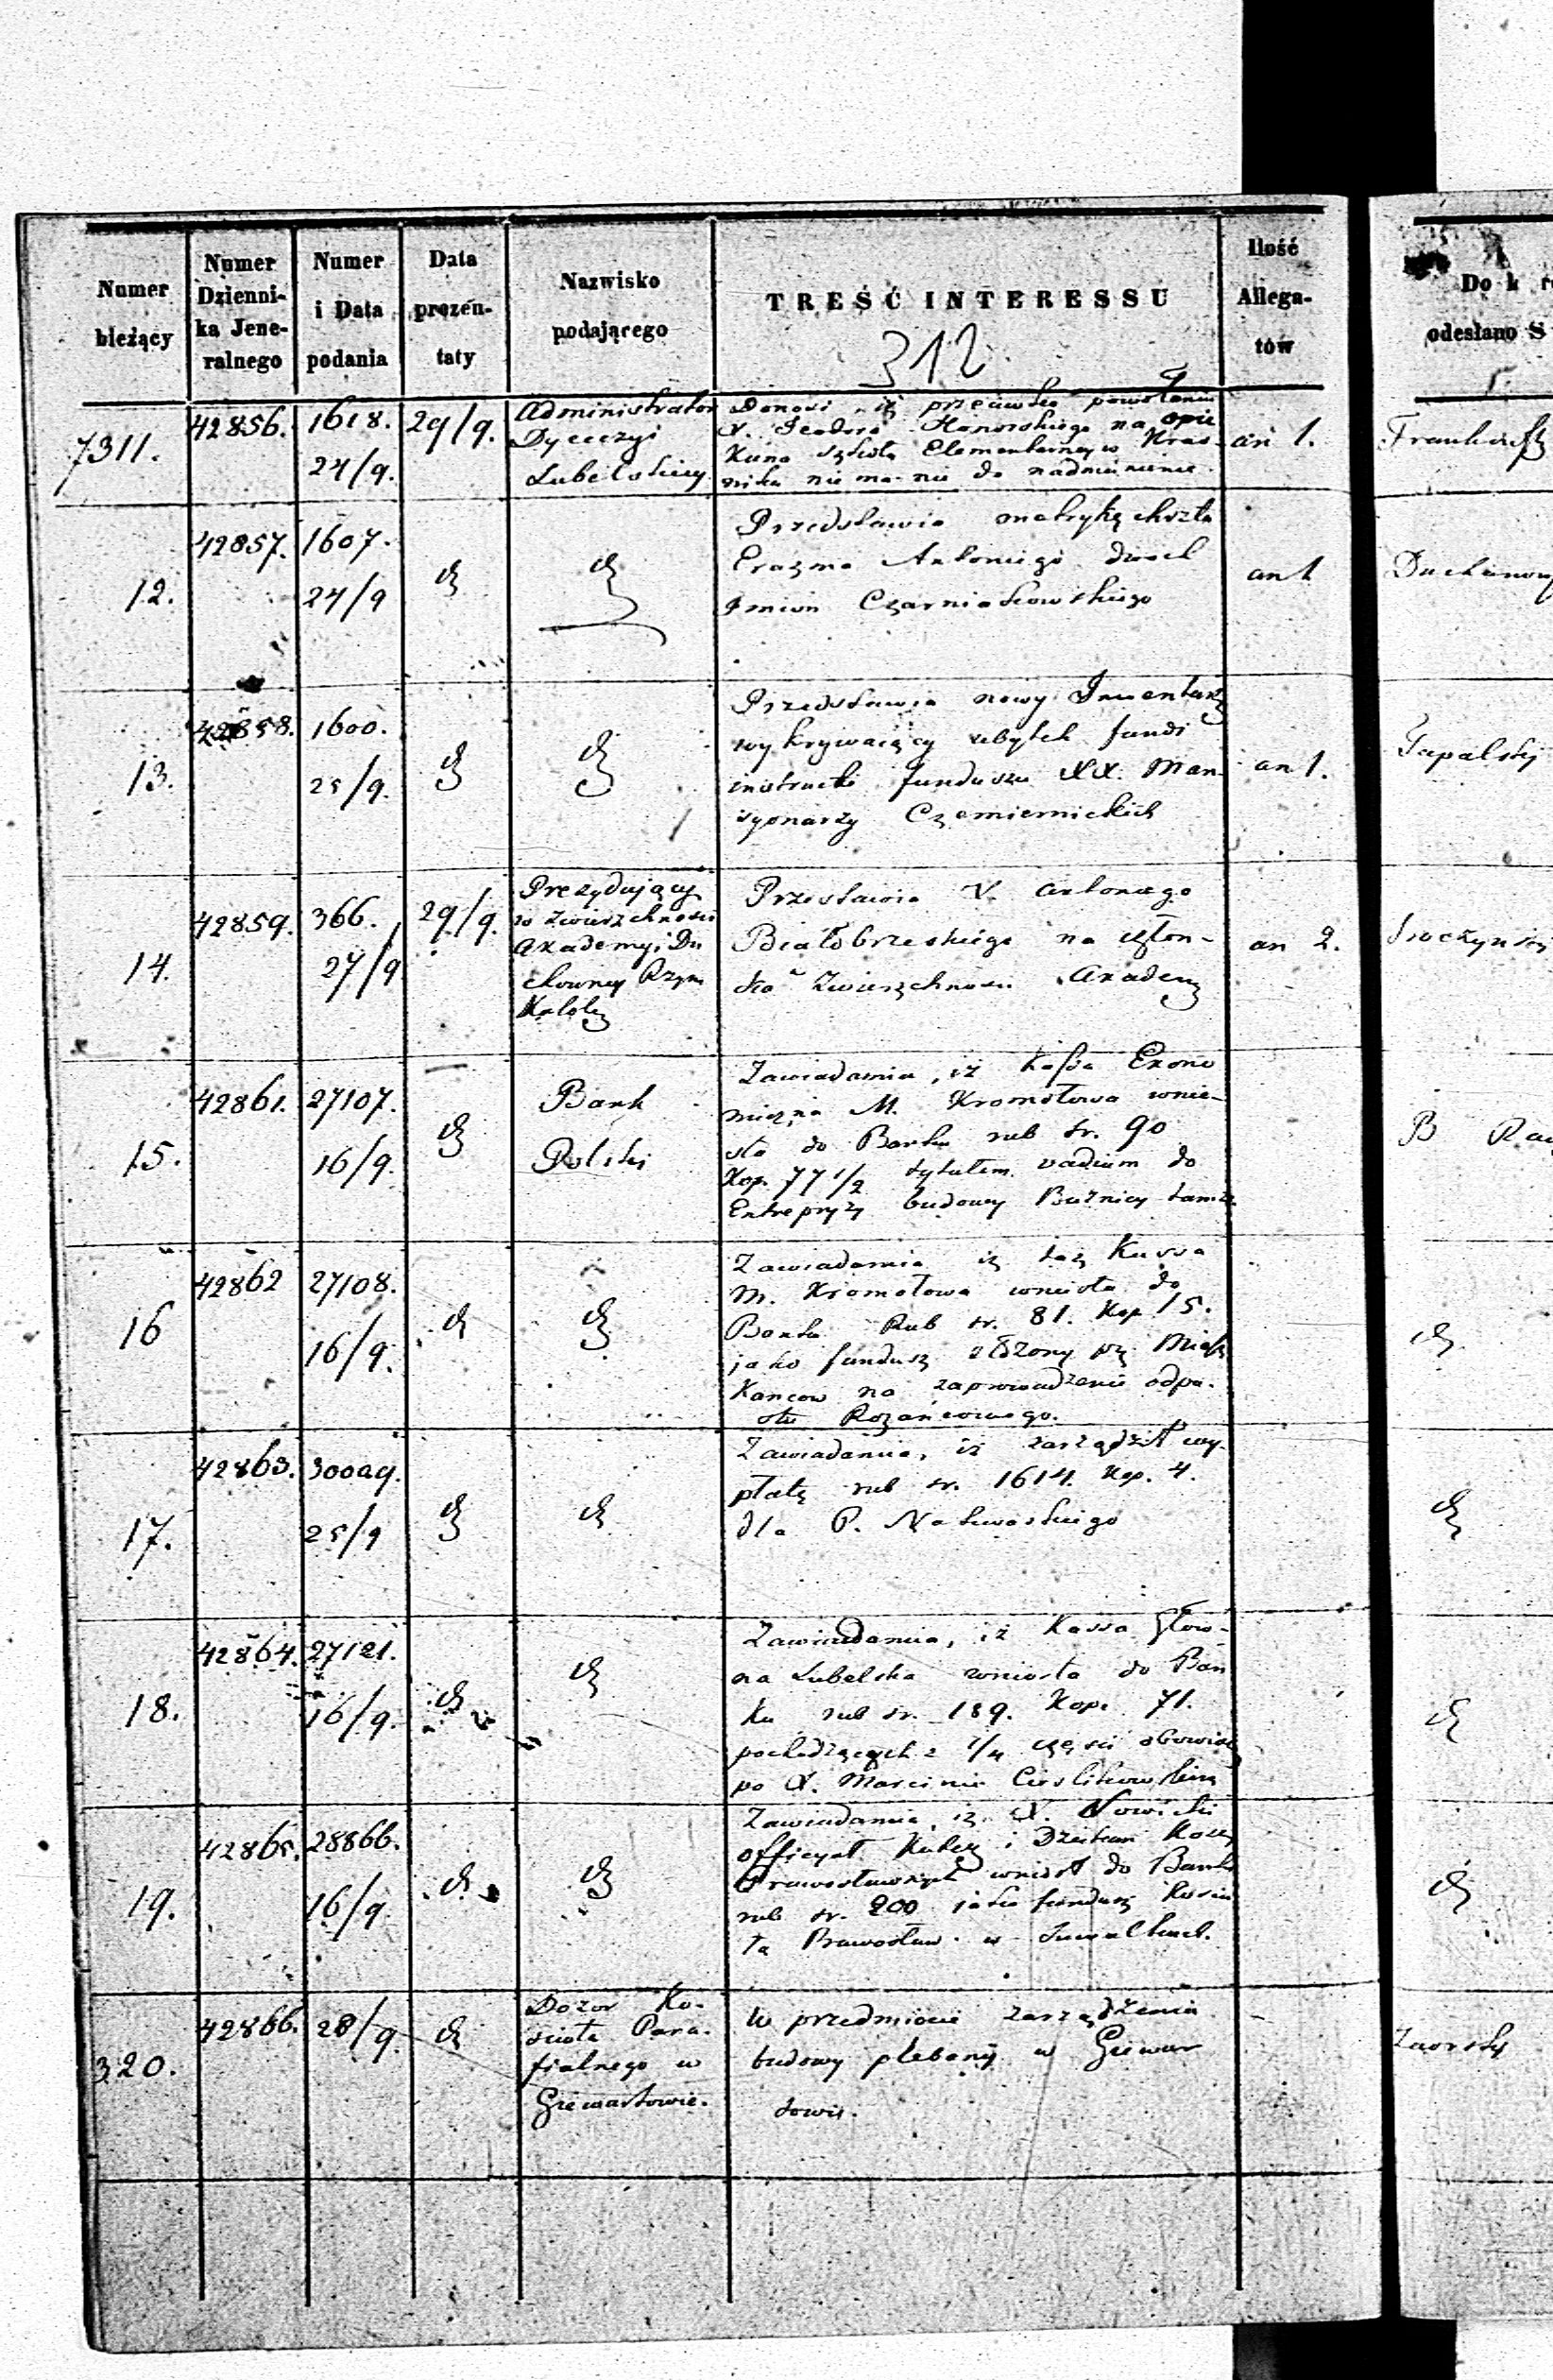 Numer bieżący
Numer Dzienni-
ka Jene-
ralnego
Numer
i Data
podania
Data
prezen-
taty
Nazwisko
podającego
TREŚĆ INTERESSU
312
Ilość
Allega-
tów
Do k
odesłano
7311.
42856.
1618.
24/9.
29/9.
Administrator
Dyecezyi
Lubelskiey
Donosi, iż przeciwko powołaniu
X. Teodora na opie
kuna szkoły Elementarney w Kras-
niku nie ma nic do nadmienienia.
an 1.
12.
42857.
1607.
24/9
Przedstawia metrykę chrztu
Erazma Antoniego dwoch
Imion Czarniakowskiego
an 1
13.
42858.
1600.
25/9.
Przedstawia nowy Inwentarz
wykrywaiący ubytek fundi
instructi funduszu XX. Man-
syonarzy Czemiernickich
an 1.
14.
42859.
366.
27/9
29/9.
Prezydujący
w Zwierzchności
Akademyi Du
chowney Rzym
Katolic
Przedstawia X. Antoniego
Białobrzeskiego na człon-
ka Zwierzchności Akadem
an 2.
15.
42861.
27107.
16/9.
Bank
Polski
Zawiadamia, iż Kassa Ekono
miczna M. Kromołowa wnie-
sła do Banku rub sr. 90
Kop. 77 1/2 tytułem vadium do
Entrepryzy budowy Bużnicy tamże
B
16
42862
27108.
16/9.
Zawiadamia iż taż Kassa
M. Kromołowa wniosła do
Banku Rub sr. 81. Kop. 15.
jako fundusz złożony prz Miesz
kancow na zaprowadzenie odpu-
stu Rożańcowego.
17.
42863.
30029.
25/9
Zawiadamia, iż zarządził wy-
płatę rub sr. 1614. Kop. 4.
dla P. Nakwaskiego
18.
42864.
27121.
16/9.
Zawiadamia, iż Kassa Głow-
na Lubelska wniosła do Ban
ku rub sr. 189. Kop. 71.
pochodzących z 1/4 części
po X. Marcinie Cieslikowskim
19.
42865.
28866.
16/9
Zawiadamia, iż X. Nowicki
i Dziekan
Prawosławnych wniosł do Banku
rub sr. 200 jako fundusz Koscio
ła Prawosław. w Suwałkach.
320.
42866.
28/9
Dozor Ko-
scioła Para-
fialnego w
Giewartowie.
W przedmiocie zarządzenia
budowy plebanij w Giewar
towie.